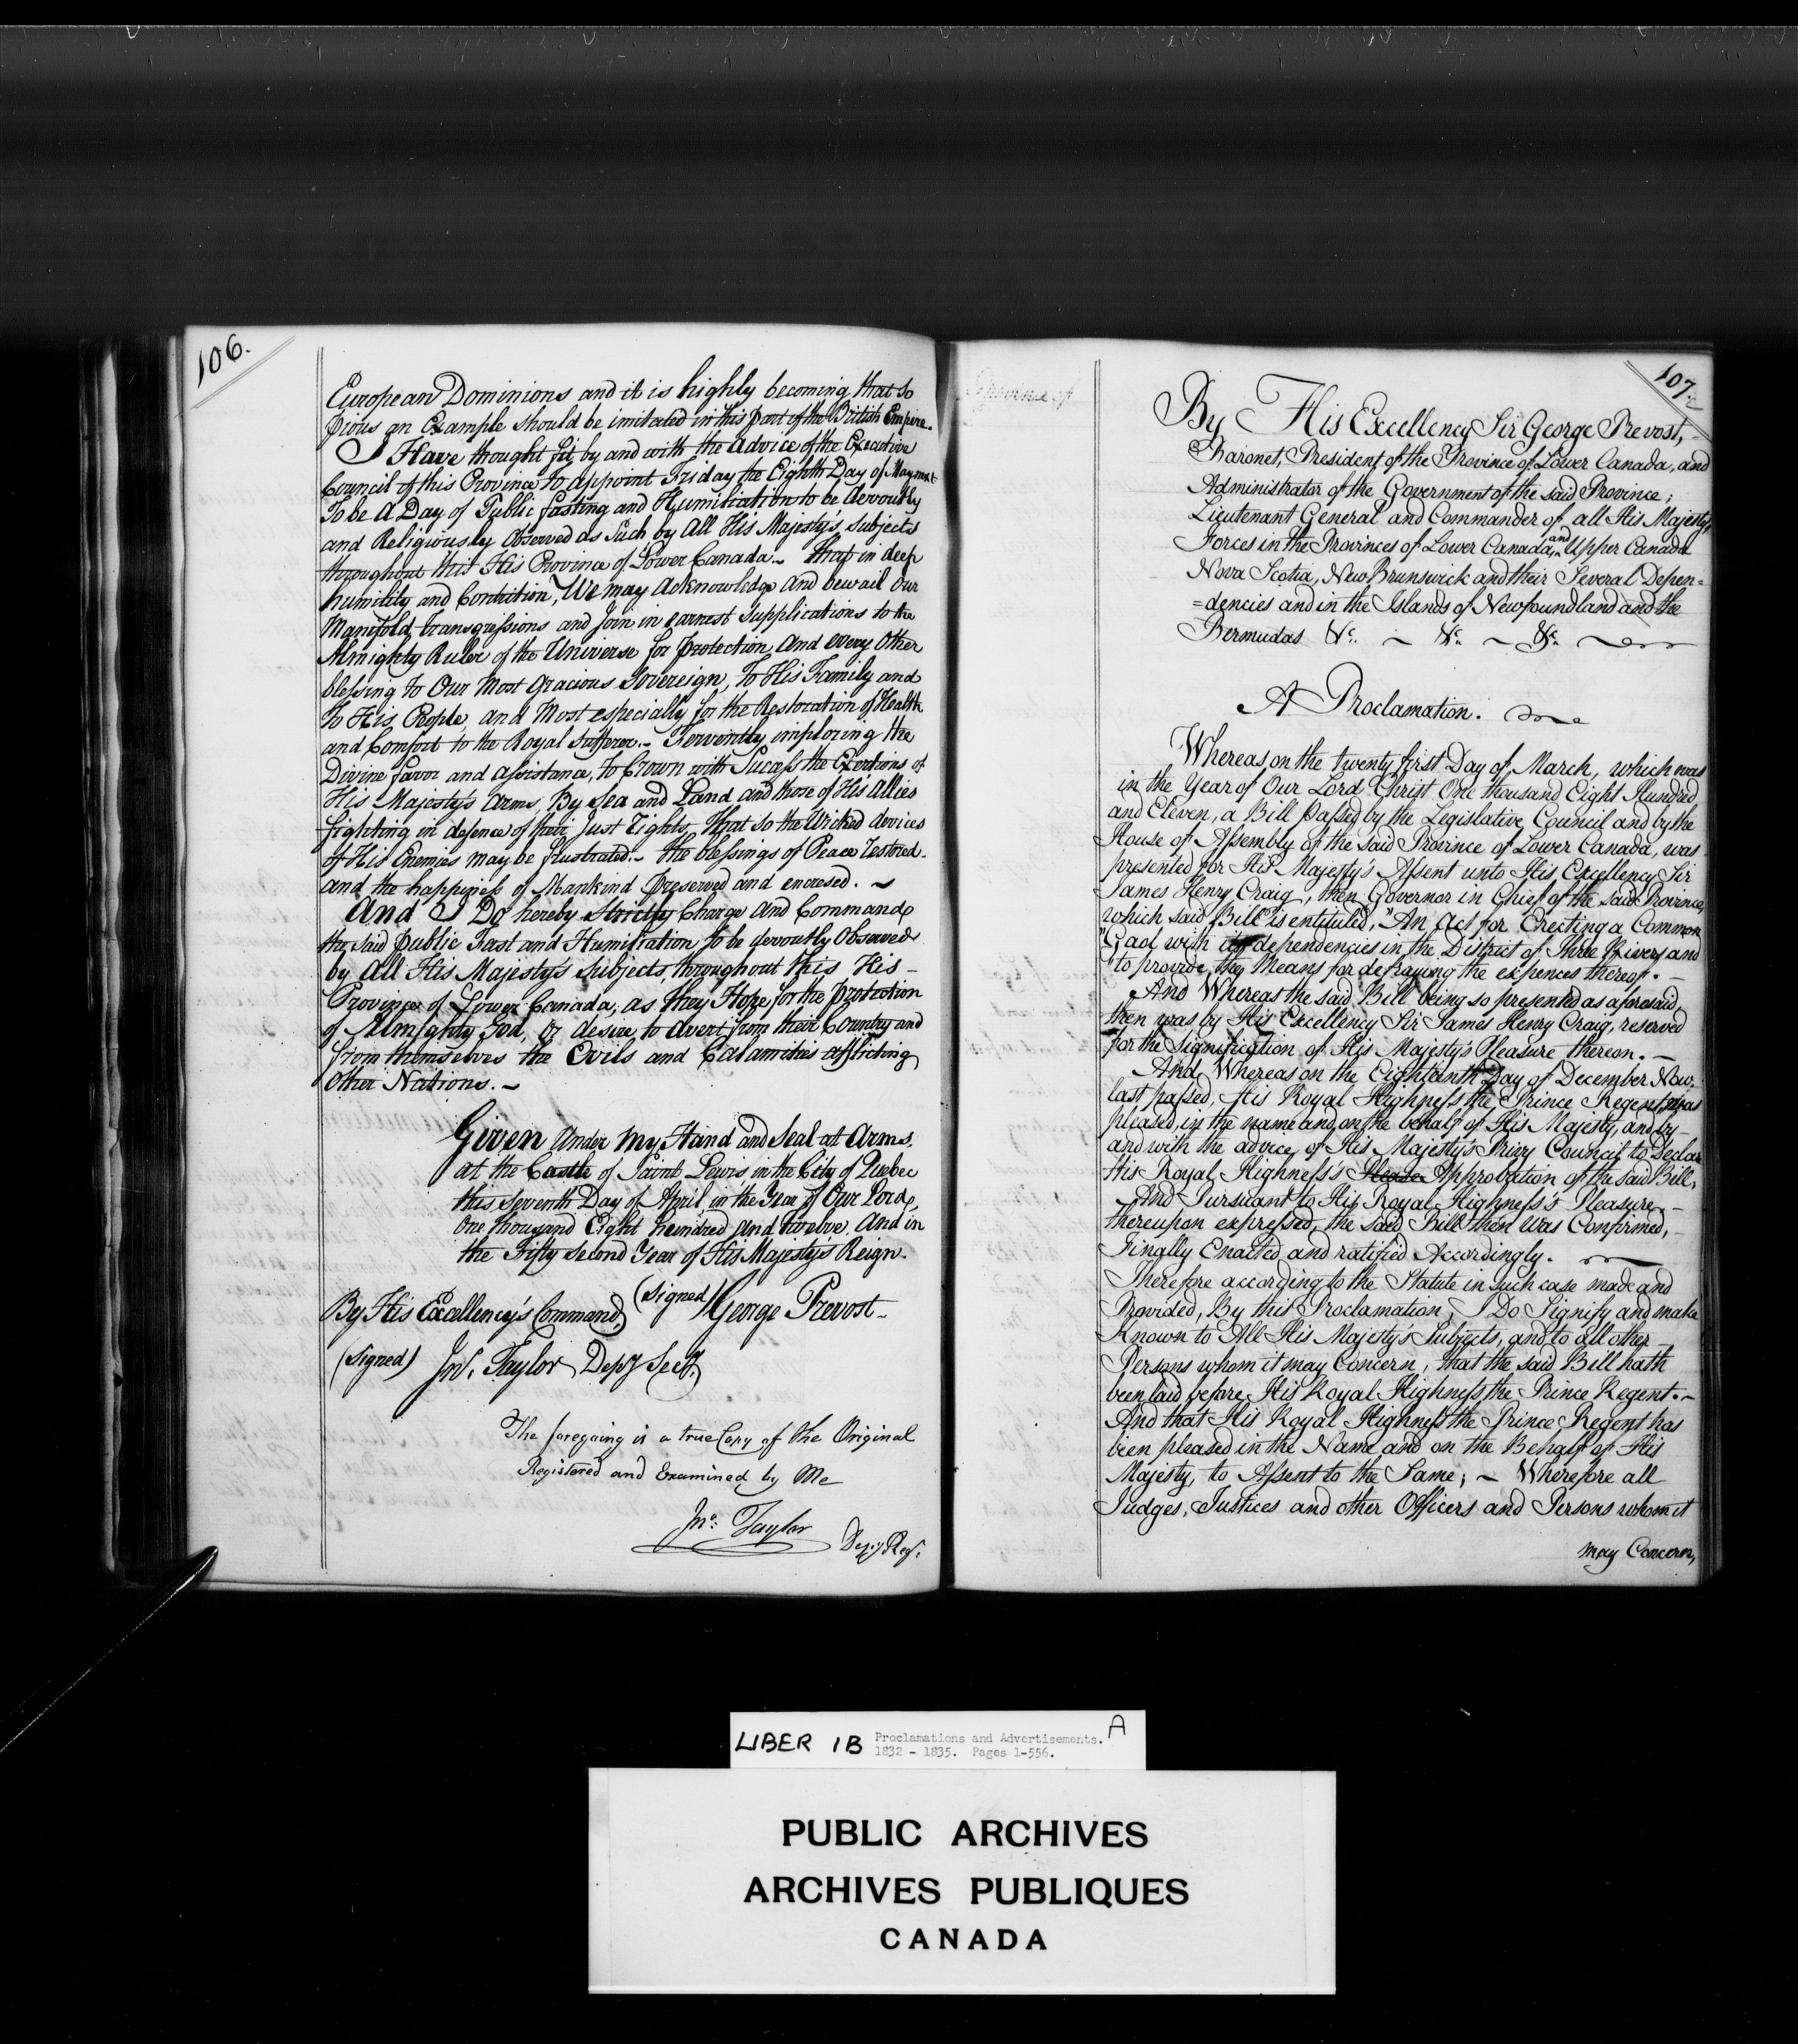 106.
European Dominions and it is highly becoming that so
pious an Example should be imitated in this part of the British Empire.
I Have thought fit, by and with the advice of the Executive
Council of this Province to appoint Friday the Eighth Day of May next
To be A Day of Public fasting and Humiliation to be devoutly
and Religiously Observed as Such by All His Majesty's Subjects
throughout this His Province of Lower Canada.~ That in deep
humility and Contrition, We may Acknowledge and bewail Our
Manifold transgressions and Join in earnest Supplications to the
Almighty Ruler of the Universe for protection, and every Other
blessing to Our Most Gracious Sovereign, To His Family and
To His People, and Most especially for the Restoration of Health
and Comfort to the Royal Sufferer.~ Fervently imploring the
Divine favor and assistance, To Crown with Sucess the Exertions of
His Majesty's Arms, By Sea and Land and those of His Allies
fighting in defence of their Just Rights, That so the Wicked devices
of His Enemies may be frustrated.~ the blessings of Peace restored.
and the happiness of Mankind preserved and encresed. ~
And I Do hereby Strictly Charge and Command
the said public Fast and Humiliation to be devoutly Observed
by All His Majesty's Subjects, throughout this His -
Province of Lower Canada, as they Hope for the protection
of Almighty God, or desire to Avert from their Country and
from themselves the Evils and Calamities afflicting
Other Nations. ~
Given Under My Hand and Seal at Arms,
at the Castle of Saint Lewis, in the City of Quebec
this Seventh Day of April, in the Year of Our Lord,
One thousand Eight hundred and twelve. And in
the Fifty Second Year of His Majesty's Reign.
(Signed) George Prevost-
By His Excellency's Command,
(Signed) Jno. Taylor Depy Secy.
The foregoing is a true Copy of the Original
Registered and Examined by Me
Jno: Taylor
Depy Regr.
Province of
107.
By His Excellency Sir George Prevost, -
Baronet, President of the Province of Lower Canada, and
Administrator of the Government of the said Province;
Lieutenant General and Commander of all His Majesty's
Forces in the Provinces of Lower Canada, and Upper Canada
Nova Scotia, New Brunswick and their Several Depen=
=dencies and in the Islands of Newfoundland and the
Bermudas &c. ~ &c. ~ &c. ~
A Proclamation.
Whereas on the twenty first Day of March, which was
in the Year of Our Lord Christ One thousand Eight Hundred
and Eleven, a Bill passed by the Legislative Council and by the
House of Assembly of the said Province of Lower Canada, was
presented for His Majesty's Assent unto His Excellency Sir
James Henry Craig, then Governor in Chief of the said Province,
which said Bill is entituled, "An Act for Erecting a Common
"Gaol with its dependencies in the District of Three Rivers and
"to provide the Means for defraying the expences thereof. -
And Whereas the said Bill being so presented as aforesaid,
then was by His Excellency Sir James Henry Craig, reserved
for the Signification of His Majesty's Pleasure thereon. -
And Whereas on the Eighteenth Day of December Now
last passed, His Royal Highness the Prince Regent, was
pleased, in the name and on the behalf of His Majesty, and by -
and with the advice of His Majesty's Privy Council, to Declare
His Royal Highness's Approbation of the said Bill,
And Pursuant to His Royal Highness's Pleasure -
thereupon expressed, the said Bill then Was Confirmed, -
Finally Enacted and ratified Accordingly.
Therefore according to the Statute in such case made and
Provided, By this Proclamation, I Do Signify and make
Known to All His Majesty's Subjects, and to all other
Persons whom it may Concern, that the said Bill hath
been laid before His Royal Highness the Prince Regent. ~
And that His Royal Highness the Prince Regent has
been pleased in the Name and on the Behalf of His
Majesty, to Assent to the Same; ~ Wherefore all
Judges, Justices and other Officers and Persons whom it
may Concern,
LIBER 1B Proclamations and Advertisements. A
1832 - 1835. Pages 1-556.
PUBLIC ARCHIVES
ARCHIVES PUBLIQUES
CANADA